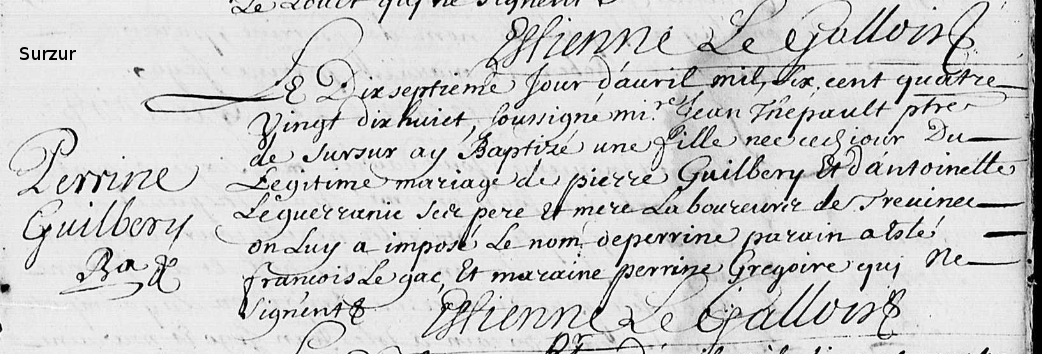 Le Louet qui ne signent
Surzur
Estienne Le Gallois
Le Dixseptieme Jour d'auril mil, six, cent quatre
Vingt dixhuict, soussigné mi.re Jean Thepault ptre
de Sursur ay Baptizé une fille nee cedjour Du
Legitime mariage de pierre Guilbery Et d'antoinette
Perrine
Guilbery
Ba
Leguerranic ses pere Et mere Laboureurs de Trevinec
on Luy a imposé Le nom deperrine parain a Esté
francois Le gac, Et maraine perrine Gregoire qui Ne
signent
Estienne Le Gallois